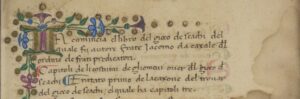 Incomincia el libro del gioco de scachi del
quale fu autore frate Jacomo da cazale del
ordine de frati predicatori
Capitoli de li costumi de gli homini over del gioco de
scachi
Tratato primo de la casone del trovar
del gioco de scachi el quale ha capitoli tre